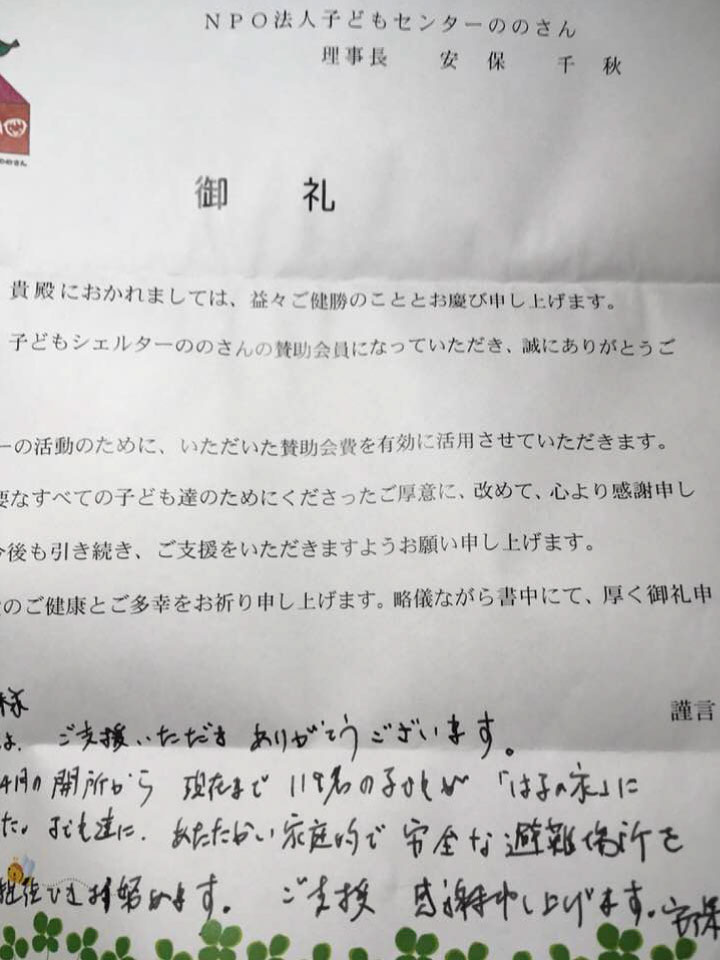 NPO法人子どもセンターののさん
理事長 安保 千秋
ののさん
御 礼
貴殿におかれましては、益々ご健勝のこととお慶び申し上げます。
子どもシェルターののさんの賛助会員になっていただき、誠にありがとうご
ーの活動のために、いただいた賛助会費を有効に活用させていただきます。
要なすべての子ども達のためにくださったご厚意に、改めて、心より感謝申し
今後も引き続き、ご支援をいただきますようお願い申し上げます。
のご健康とご多幸をお祈り申し上げます。略儀ながら書中にて、厚く御礼申
謹言
様
は、ご支援いただき ありがとうございます。
4月の開所から 現在まで 119名の子どもが 「はるの家」に
た。子ども達に、あたたかい家庭的で 安全な避難場所を
ます。 ご支援 感謝申し上げます。安保